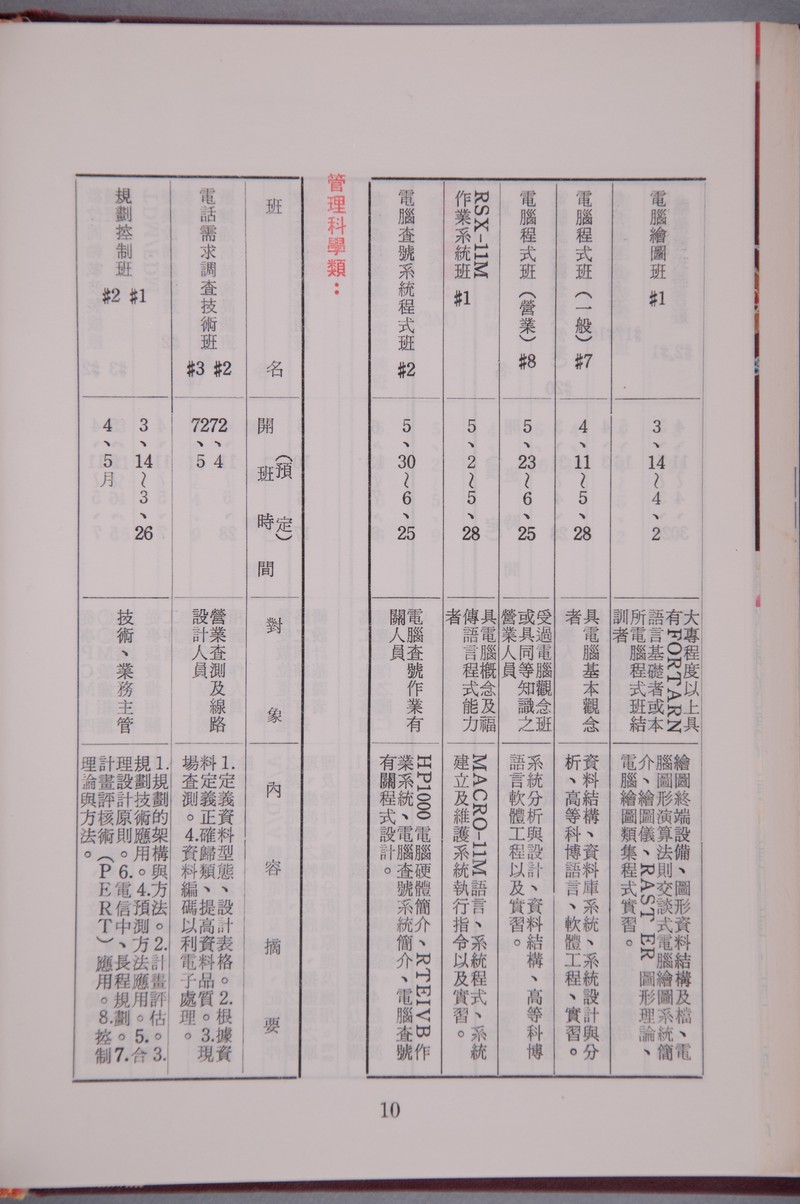 電腦繪圖班 #1
3、14~4、2
大專程度以上具
有FORTARN
語言基礎者或本
所電腦程式班結
訓者
繪圖終端設備、圖形資料結構及檔、電
腦圖形演算法則交談式電腦繪圖系統、簡
介、繪圖儀、RAST ER 圖形理論、
電腦繪圖類集程式實習。
電腦程式班(一般) #7
4、11~5、28
具電腦基本觀念
者
資料結構、資料庫系統、系統設計與分
析、高等科博語言、軟體工程、實習。
電腦程式班(營業) #8
5、23~6、25
受過電腦觀念班
或具同等知識之
營業人員
系統分析與設計、資料結構、高等科博
語言軟體工程以及實習。
RSX-11M
作業系統班 #1
5、2~5、28
具電腦概念及福
傳語言程式能力
者
MACRO-11M語言、系統程式、系統
建立及維護系統執行指令以及實習。
電腦查號系統程式班 #2
5、30~6、25
電腦查號作業有
關人員
HP1000電腦硬體簡介、RTEIVB作
業系統、電腦查號系統簡介、電腦查號
有關程式設計。
管理科學類:
班名
(預定)
開班時間
對象
內容摘要
電話需求調查技術班 #2
#3
72、4
72、5
營業查測及線路
設計人員
1.定義資料型態、設計表格。2.根據資
料定義正確歸類、提高資料品質。3.現
場查測。4.資料編碼以利電子處理。
規劃控制班 #1
#2
3、14~3、26
4、5月
技術、業務主管
1.規劃的架構與方法2.計畫評估。3.
規劃技術應用。4.預測方法應用。5.合
理設計原則。6.電信中、長程規劃。7.
計畫評核術(PERT)應用。8.控制
理論與方法。
10